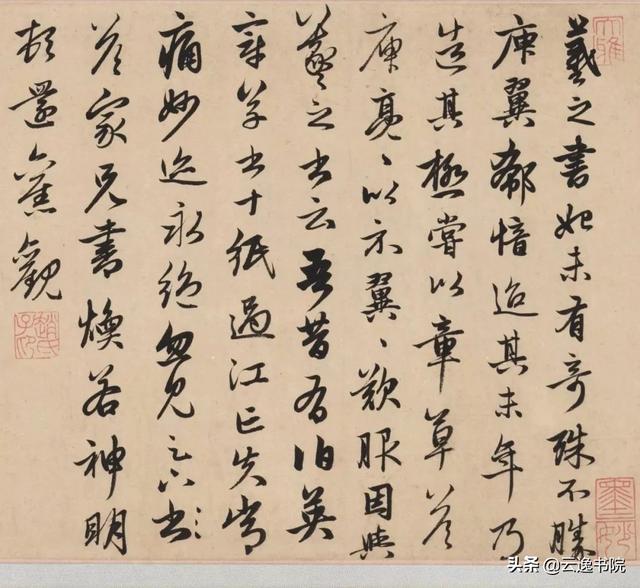 羲之書始未有奇殊不勝
庾翼郗愔迨其末年乃
造其極嘗以章草荅
庾亮、以示翼、歎服因與
羲之書云吾昔有伯英
章草書十紙過江亡失常
痛妙迹永絕忽見足下書
荅家兄書煥若神明
頓還舊觀
趙氏子昂
大雅
头条 @云逸书院